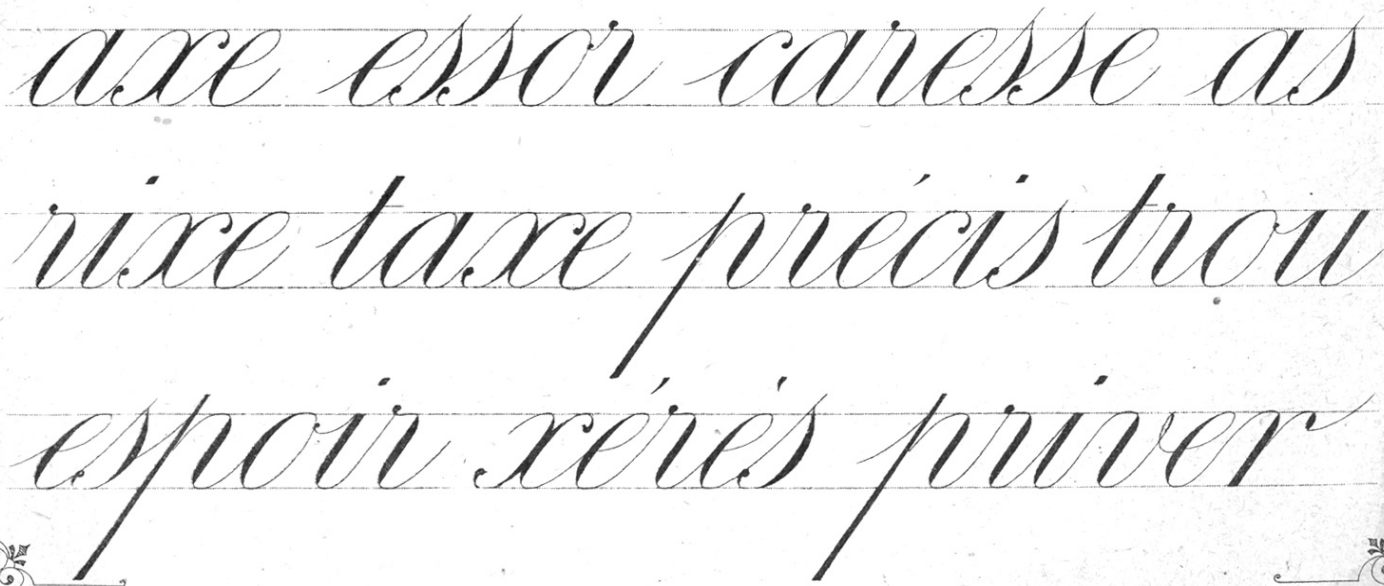 axe essor caresse as
rixe taxe précis trou
espoir xérés priver